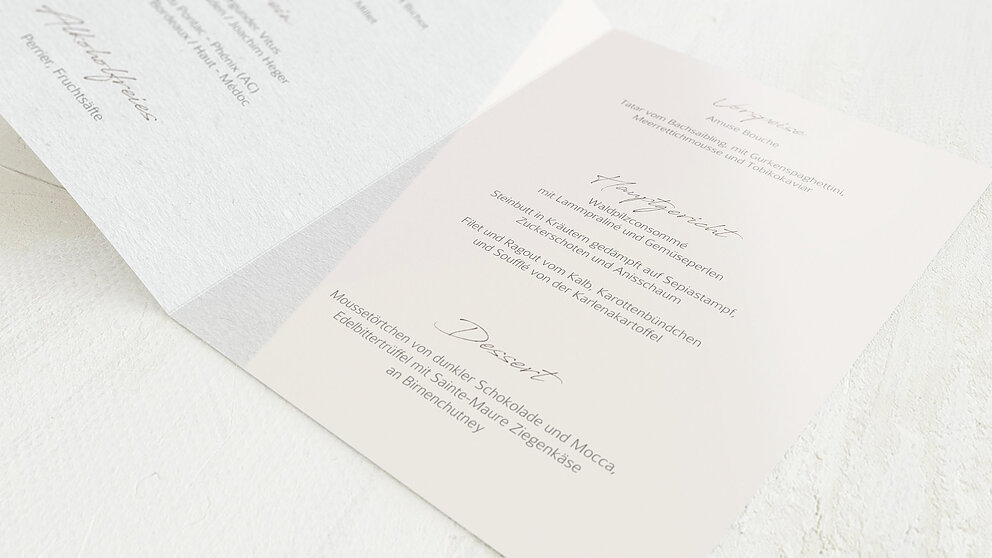 Millet
rgender, Vitus
den / Joachim Heger
u Pontac - Phénix (AC)
Bordeaux / Haut - Médoc
Alkoholfreies
Perrier, Fruchtsäfte
Vorspeise
Amuse Bouche
Tatar vom Bachsaibling, mit Gurkenspaghettini,
Meerrettichmousse und Tobikokaviar
Hauptgericht
Waldpilzconsommé
mit Lammpraliné und Gemüseperlen
Steinbutt in Kräutern gedämpft auf Sepiastampf,
Zuckerschoten und Anisschaum
Filet und Ragout vom Kalb, Karottenbündchen
und Soufflé von der Karlenakartoffel
Dessert
Moussetörtchen von dunkler Schokolade und Mocca,
Edelbittertrüffel mit Sainte-Maure Ziegenkäse
an Birnenchutney